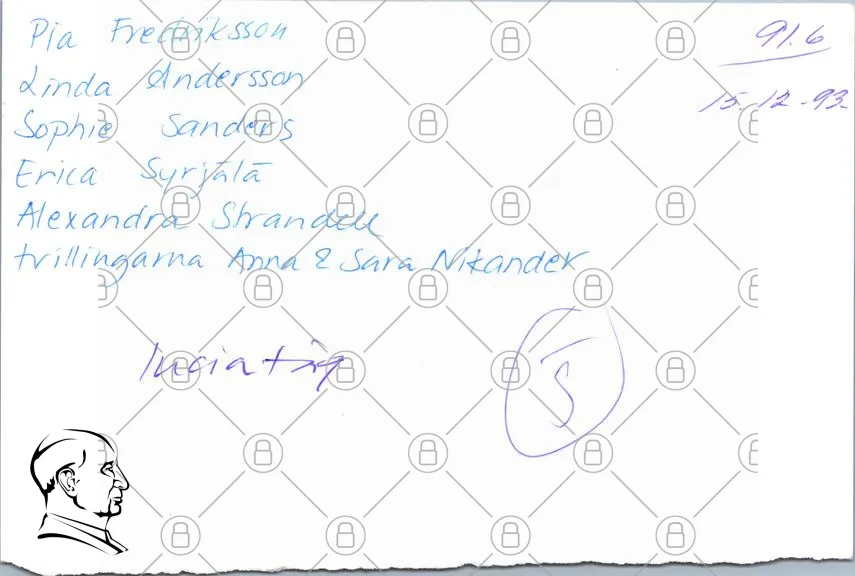 Pia Fredriksson
91.6
Linda Andersson
15.12.-93.
Sophie Sanders
Erica Syrjälä
Alexandra Strandell
tvillingarna Anna & Sara Nikander
luciatåg
S